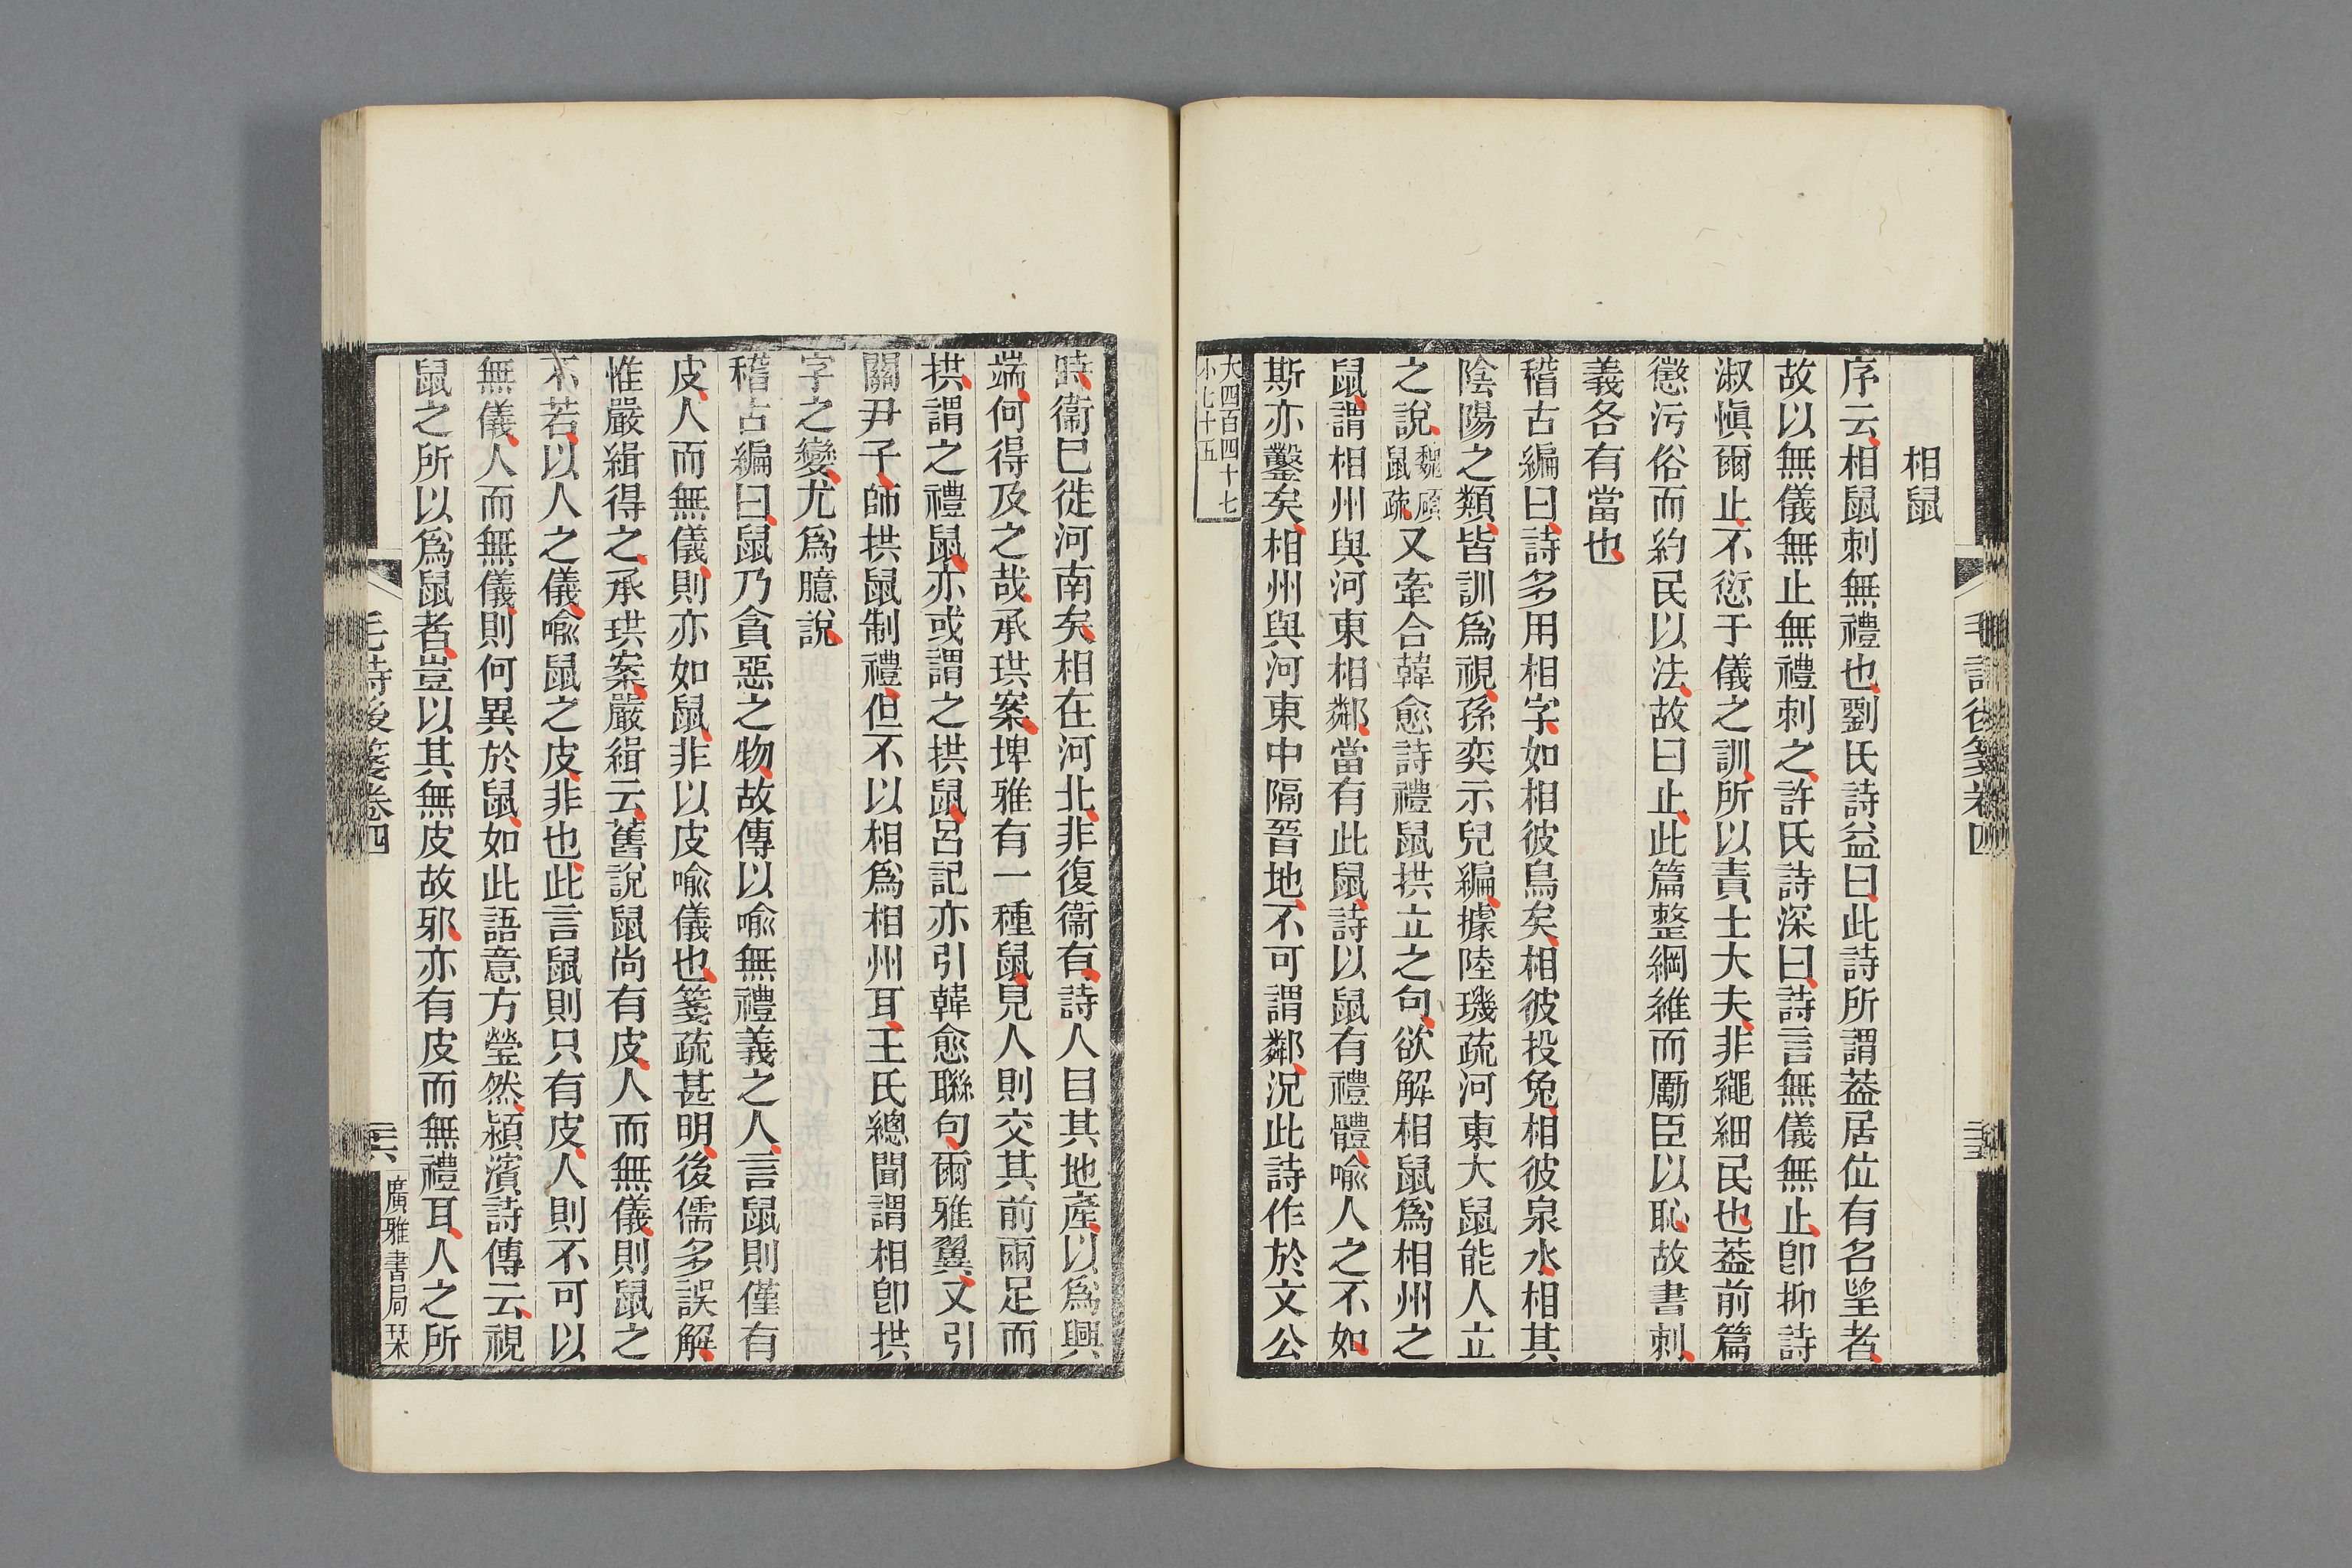 相鼠
序云相鼠刺無禮也劉氏詩益曰此詩所謂葢居位有名望者
故以無儀無止無禮刺之許氏詩深曰詩言無儀無止卽抑詩
淑愼爾止不愆于儀之訓所以責士大夫非繩細民也葢前篇
懲污俗而約民以法故曰止此篇整綱維而勵臣以恥故書刺
義各有當也
稽古編曰詩多用相字如相彼鳥矣相彼投兔相彼泉水相其
陰陽之類皆訓爲視孫奕示兒編據陸璣疏河東大鼠能人立
之說魏碩鼠疏又牽合韓愈詩禮鼠拱立之句欲解相鼠爲相州之
鼠謂相州與河東相鄰當有此鼠詩以鼠有禮體喩人之不如
斯亦鑿矣相州與河東中隔晉地不可謂鄰況此詩作於文公
大四百四十七
小七十五
毛詩後箋卷四
時衞巳徙河南矣相在河北非復衞有詩人目其地產以爲興
端何得及之哉承珙案埤雅有一種鼠見人則交其前兩足而
拱謂之禮鼠亦或謂之拱鼠呂記亦引韓愈聯句爾雅翼又引
關尹子師拱鼠制禮但不以相爲相州耳王氏總聞謂相卽拱
字之變尤爲臆說
稽古編曰鼠乃貪惡之物故傳以喩無禮義之人言鼠則僅有
皮人而無儀則亦如鼠非以皮喩儀也箋疏甚明後儒多誤解
惟嚴緝得之承珙案嚴緝云舊說鼠尚有皮人而無儀則鼠之
不若以人之儀喩鼠之皮非也此言鼠則只有皮人則不可以
無儀人而無儀則何異於鼠如此語意方瑩然潁濱詩傳云視
鼠之所以爲鼠者豈以其無皮故邪亦有皮而無禮耳人之所
毛詩後箋卷四
廣雅書局栞